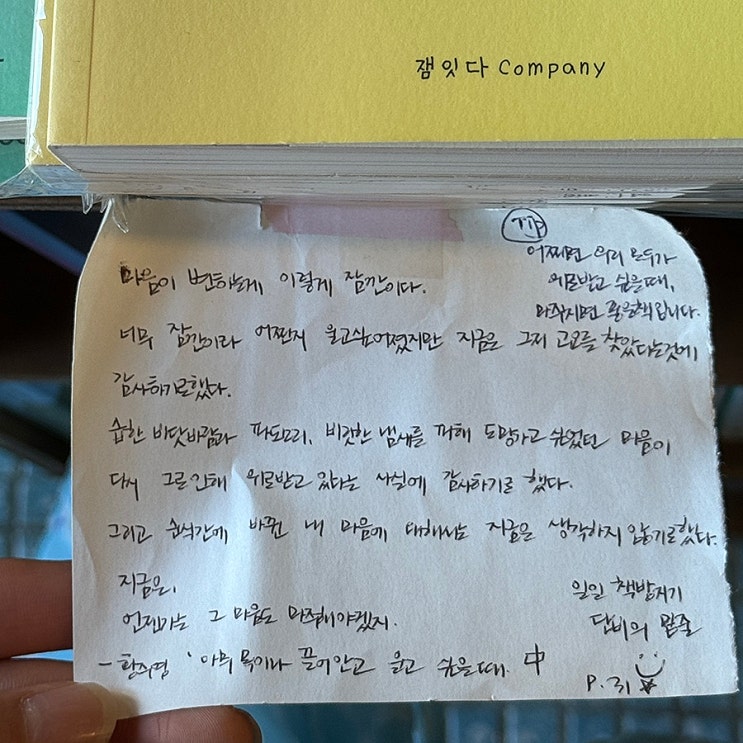 잼잇다 Company
TIP
어찌면 우리 모두가
위로받고 싶을때,
마주치면 좋을책입니다.
마음이 변하는게 이렇게 잠깐이다.
너무 잠깐이라 어쩐지 울고싶어졌지만 지금은 그저 고요를 찾았다는것에
감사하기로했다.
습한 바닷바람과 파도소리, 비릿한 냄새를 피해 도망가고 싶었던 마음이
다시 그로인해 위로받고 있다는 사실에 감사하기로 했다.
그리고 순식간에 바뀐 내 마음에 대해서는 지금은 생각하지 않기로했다.
지금은,
언젠가는 그 마음도 마주해야겠지.
- 황주영 '아무 목이나 끌어안고 울고 싶을때' 中
일일 책방지기
단비의 밑줄
P. 31